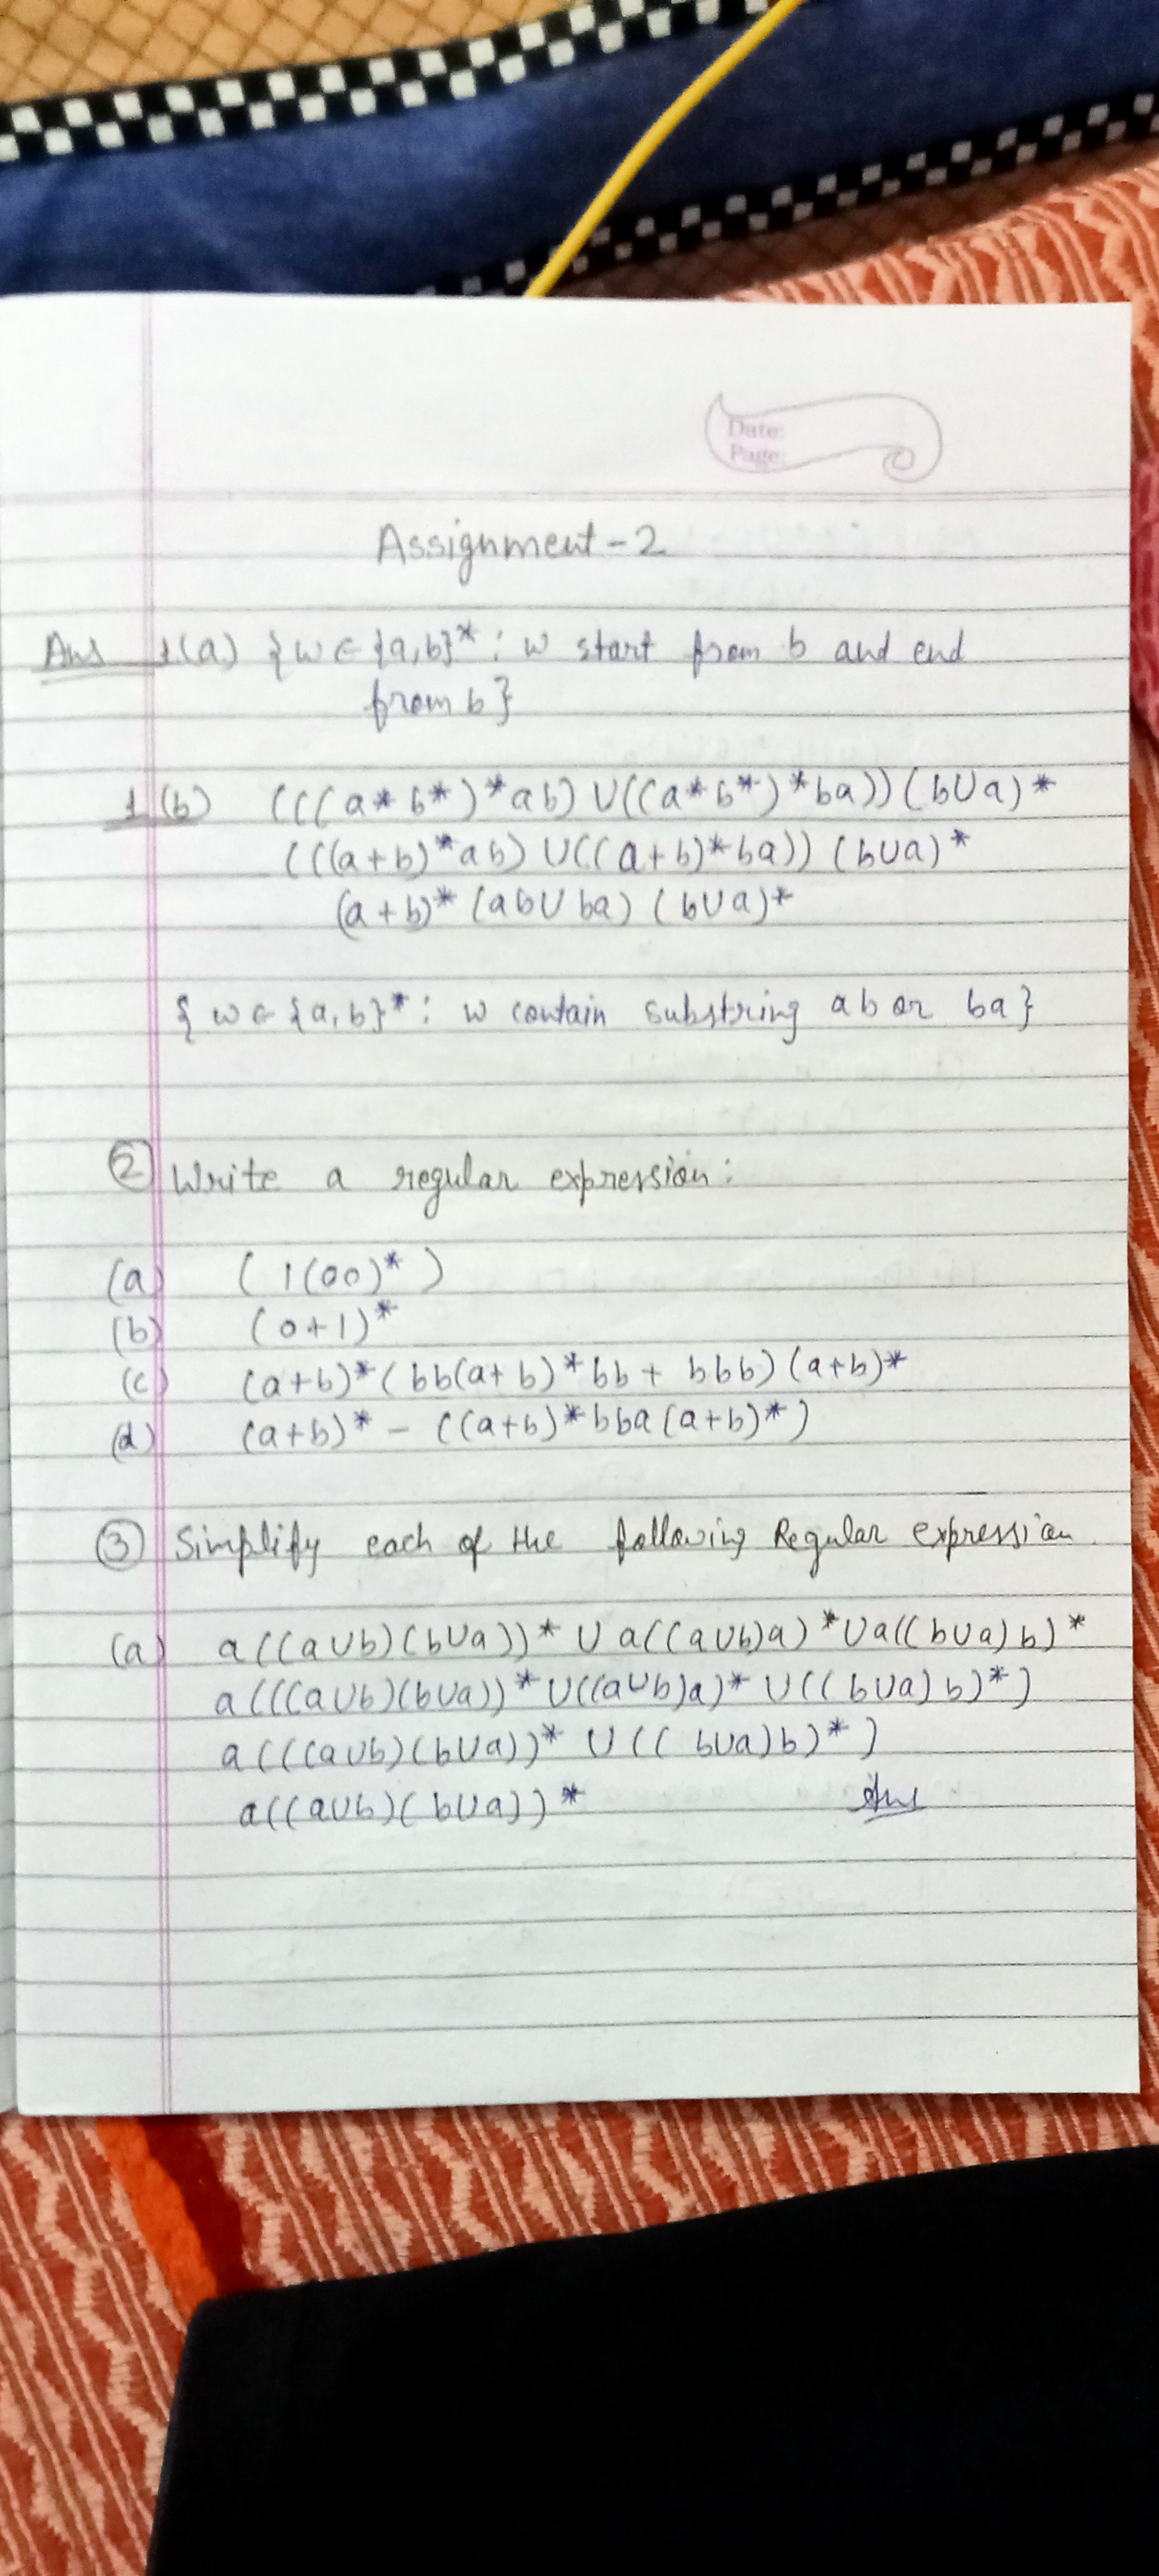 Date:
Page:
Assignment-2
Ans 1(a) {w ∈ {a,b}* : w start from b and end
from b}
1(b) (((a*b*)*ab) ∪ ((a*b*)*ba))(b∪a)*
(((a+b)*ab) ∪ ((a+b)*ba)) (b∪a)*
(a+b)* (ab∪ba) (b∪a)*
{ w ∈ {a,b}* : w contain substring ab or ba}
② Write a regular expression:
(a) (1(00)*)
(b) (0+1)*
(c) (a+b)*(bb(a+b)*bb + bbb)(a+b)*
(d) (a+b)* - ((a+b)*bba(a+b)*)
③ Simplify each of the following Regular expression.
(a) a((a∪b)(b∪a))* ∪ a((a∪b)a)* ∪ a((b∪a)b)*
a(((a∪b)(b∪a))* ∪ ((a∪b)a)* ∪ ((b∪a)b)*)
a(((a∪b)(b∪a))* ∪ ((b∪a)b)*)
a((a∪b)(b∪a))* Ans